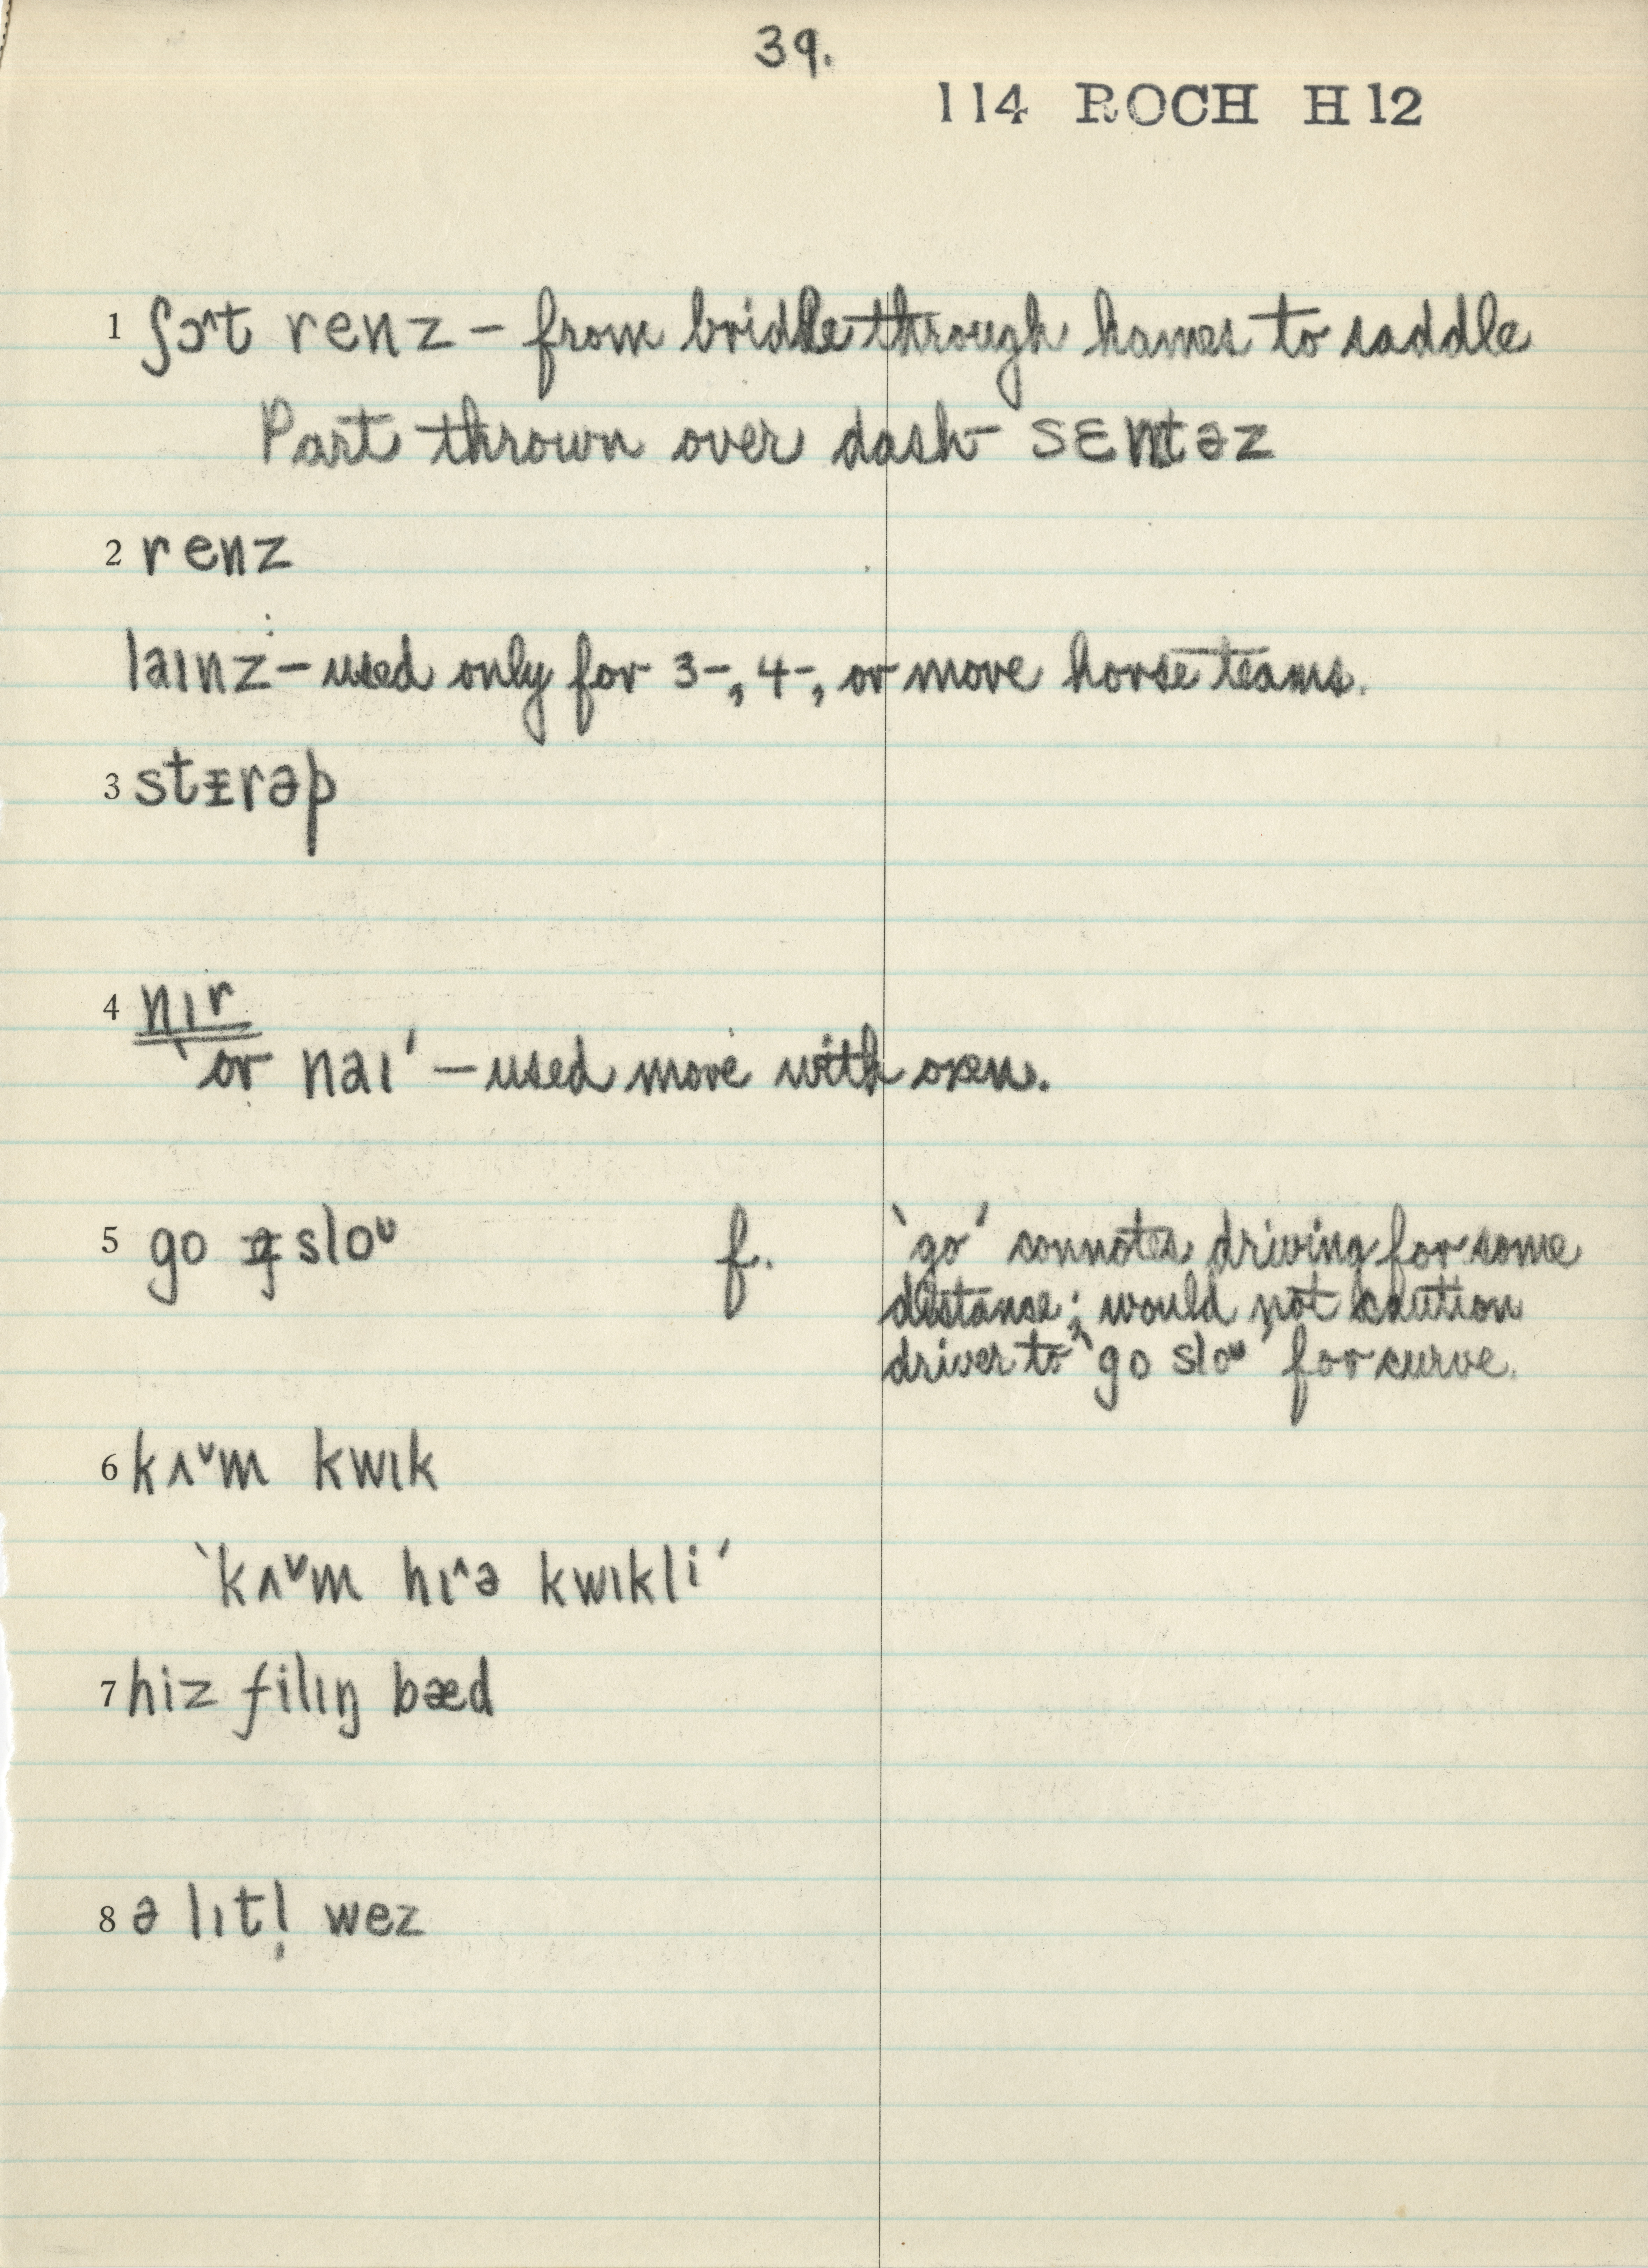 39.
114 ROCH H 12
1 ʃɔ^t renz – from bridle through hames to saddle
Part thrown over dash – sɛntəz
2 renz
laɪnz – used only for 3-, 4-, or more horse teams.
3 stɪrəp
4 nɪr
‘or naɪ’ – used more with oxen.
5 go sloᴜ f. ‘go’ connotes driving for some
distance; would not caution
driver to ‘go sloᴜ’ for curve.
6 kʌˇm kwɪk
‘kʌˇm hɪ^ə kwɪkli’
7 hiz filɪŋ bæd
8 ə lɪtl̩ wez